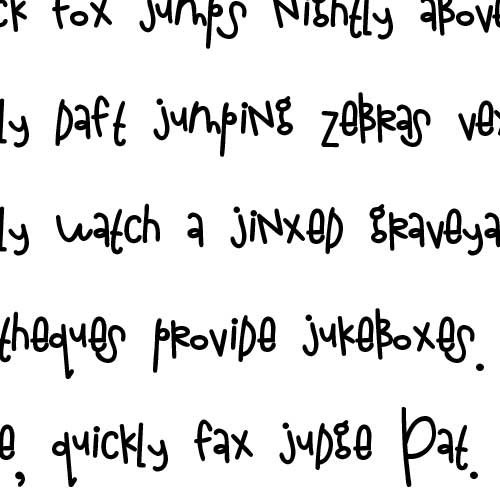 ck fox jumps nightly above
ly daft jumping zebras vex
ly watch a jinxed graveya
theques provide jukeboxes.
e, quickly fax judge Pat.